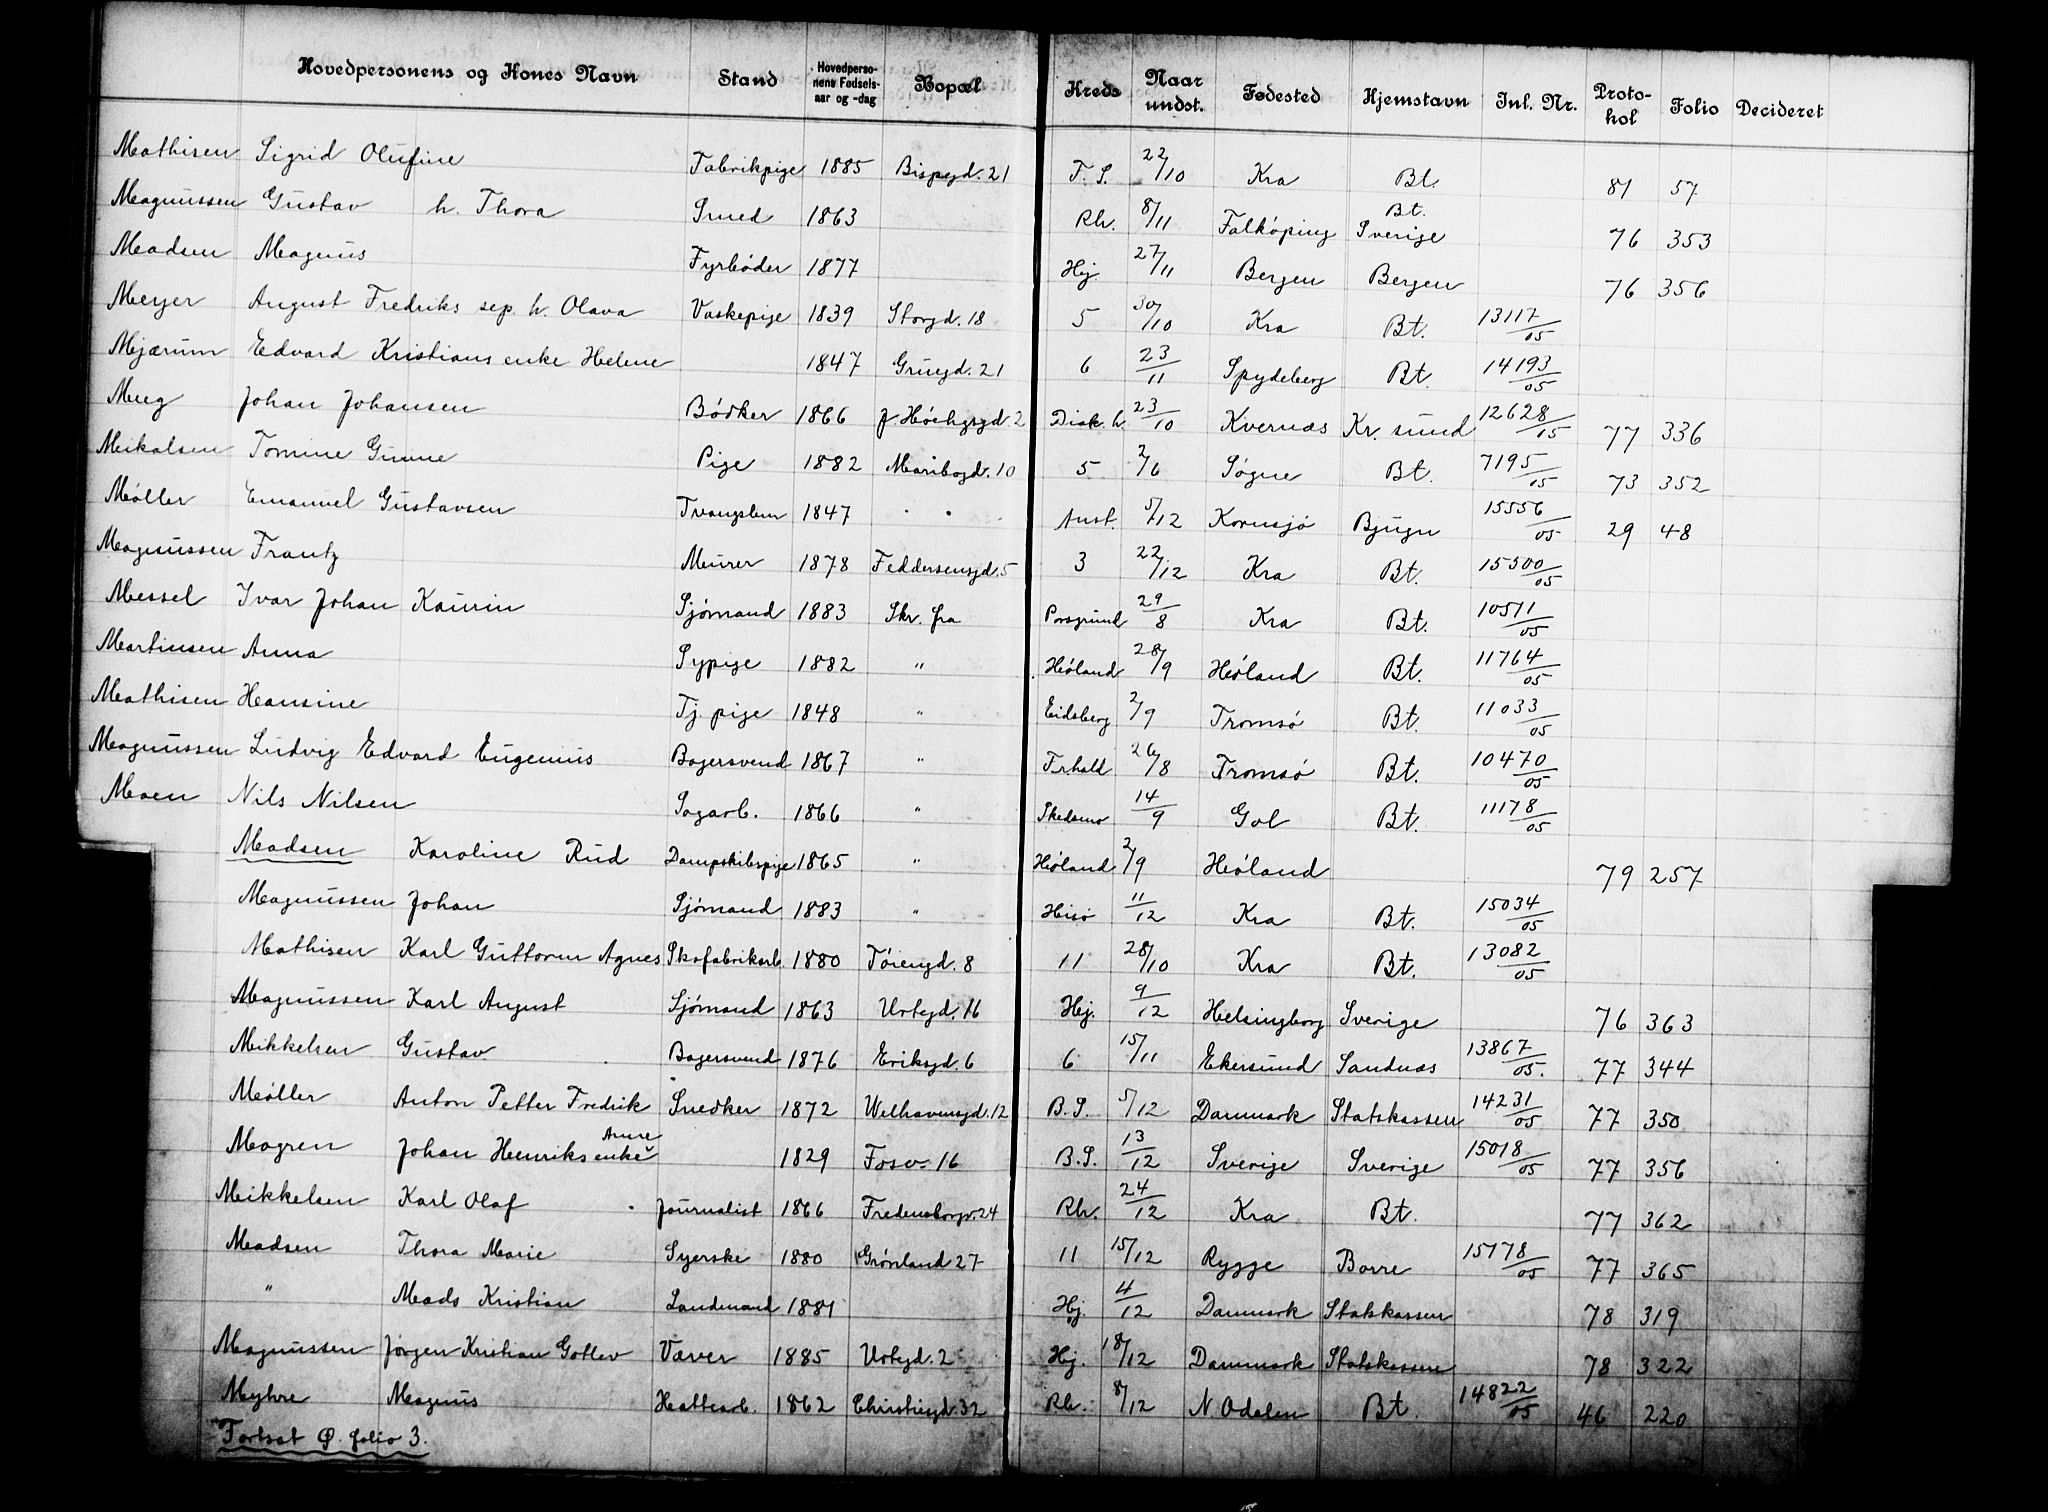 Hovedpersonens og Kones Navn Stand Hovedpersonens Fødselsaar og -dag Bopæl Kreds Naar undst. Fødested Hjemstavn Inl. Nr. Protokol Folio Decideret
Mathisen Sigrid Olufine Fabrikpige 1885 Bispegd. 21 F. S. 22/10 Kra Bt. 81 57
Magnussen Gustav h. Thora Smed 1863 Rh. 8/11 Falköping Bt. Sverige 76 353
Madsen Magnus Fyrbøder 1877 Hj. 27/11 Bergen Bergen 76 356
Meyer August Fredriks sep. h. Olava Vaskepige 1839 Storgd. 18 5 30/10 Kra Bt. 13117/05
Mjærum Edvard Kristians enke Helene 1847 Gruegd. 21 6 23/11 Spydeberg Bt. 14193/05
Myg Johan Johansen Bødker 1866 f. Høeghsgd. 2 Diak. h. 23/10 Kvernæs Kr. sund 12628/05 77 336
Mikalsen Tomine Gunne Pige 1882 Maribogd. 10 5 2/6 Søgne Bt. 7195/05 73 352
Møller Emanuel Gustavsen Tvangslem 1847 " " Anst. 5/12 Kornsjø Bjugn 15556/05 29 48
Magnussen Frantz Murer 1878 Feddersensgd. 5 3 22/12 Kra Bt. 15500/05
Messel Ivar Johan Kaurin Sjømand 1883 Skr. fra Porsgrund 29/8 Kra Bt. 10511/05
Martinsen Anna Sypige 1882 " Høland 28/9 Høland Bt. 11764/05
Mathisen Hansine Tj. pige 1848 " Eidsberg 2/9 Tromsø Bt. 11033/05
Magnussen Ludvig Edvard Eugenius Bagersvend 1867 " Fr.hald 26/8 Tromsø Bt. 10470/05
Moen Nils Nilsen Sagarb. 1866 " Skedsmo 14/9 Gol Bt. 11178/05
Madsen Karoline Rud Dampskibspige 1865 " Høland 2/9 Høland 79 257
Magnussen Johan Sjømand 1883 " Hisø 11/12 Kra Bt. 15034/05
Mathisen Karl Guttorm Agnes Skofabrikarb. 1880 Tøiengd. 8 11 28/10 Kra Bt. 13082/05
Magnussen Karl August Sjømand 1863 Urtegd. 16 Hj. 9/12 Helsingborg Sverige 76 363
Mikkelsen Gustav Bagersvend 1876 Eriksgd. 6 6 15/11 Ekersund Sandnæs 13867/05. 77 344
Møller Anton Petter Fredrik Snedker 1872 Welhavensgd. 12 B. S. 5/12 Danmark Statskassen 14231/05 77 350
Magren Johan Henriks enke Anne 1829 Fosv. 16 B. S. 13/12 Sverige Sverige 15018/05 77 356
Mikkelsen Karl Olaf Journalist 1866 Fredensborgv. 24 Rh. 24/12 Kra Bt. 77 362
Madsen Thora Marie Syerske 1880 Grønland 27 11 15/12 Rygge Borre 15178/05 77 365
" Mads Kristian Landmand 1881 Hj. 4/12 Danmark Statskassen 78 319
Magnussen Jørgen Kristian Gotlev Væver 1885 Urtegd. 2 Hj. 18/12 Danmark Statskassen 78 322
Myhre Magnus Hattearb. 1862 Christiesgd. 32 Rh. 8/12 N. Odalen Bt. 14822/05 46 220
Fortsat Ø. folio 3.